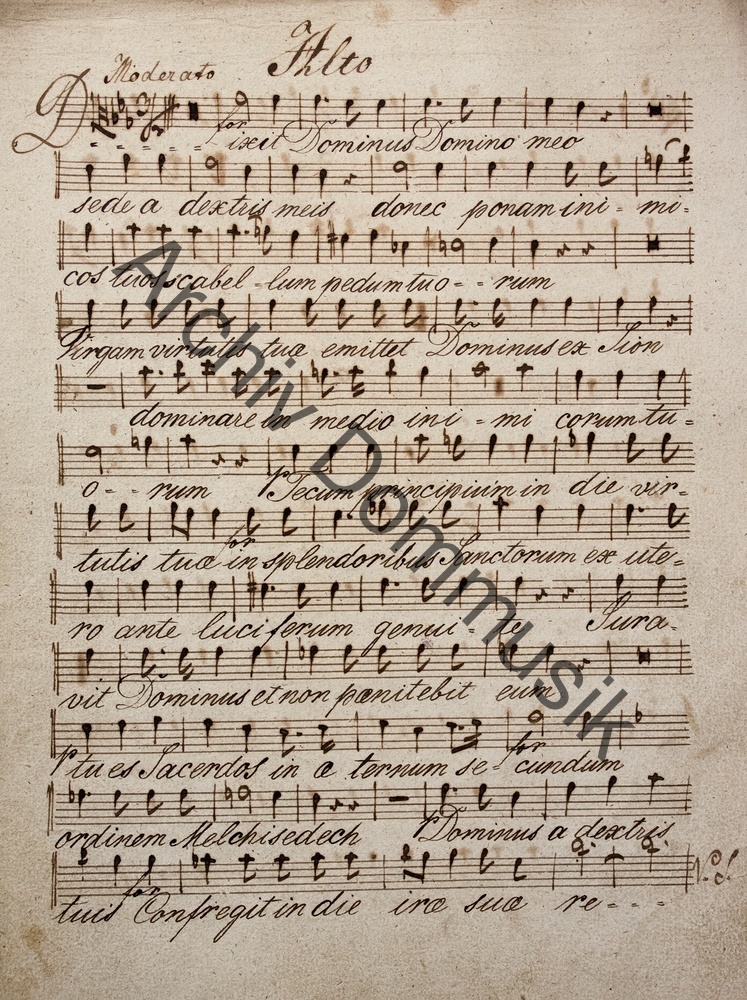 Alto
Moderato
for
Dixit Dominus Domino meo
sede a dextris meis donec ponam ini - mi-
cos tuos scabel - lum pedum tuo - - rum
Virgam virtutis tuæ emittet Dominus ex Sion
dominare in medio ini - mi corum tu-
o - - rum p Tecum principium in die vir-
tutis tuæ for in splendoribus Sanctorum ex ute-
ro ante luciferum genui - te Jura-
vit Dominus et non pœnitebit eum
p tu es Sacerdos in æ ternum se - for cundum
ordinem Melchisedech p Dominus a dextris
tuis for Confregit in die iræ suæ re - - - -
Archiv Dommusik